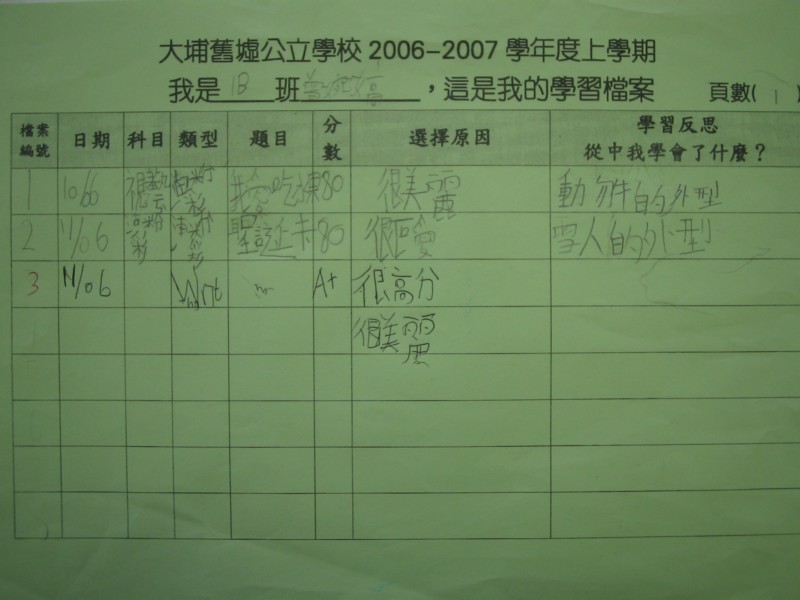 大埔舊墟公立學校 2006-2007 學年度上學期
我是 1B 班 ，這是我的學習檔案 頁數( 1 )
檔案編號 日期 科目 類型 題目 分數 選擇原因 學習反思 從中我學會了什麼？
1 10/06 視藝 我愛吃 80 很美麗 動物的外型
2 11/06 聖誕卡 80 很可愛 雪人的外型
3 11/06 A+ 很高分
很美麗